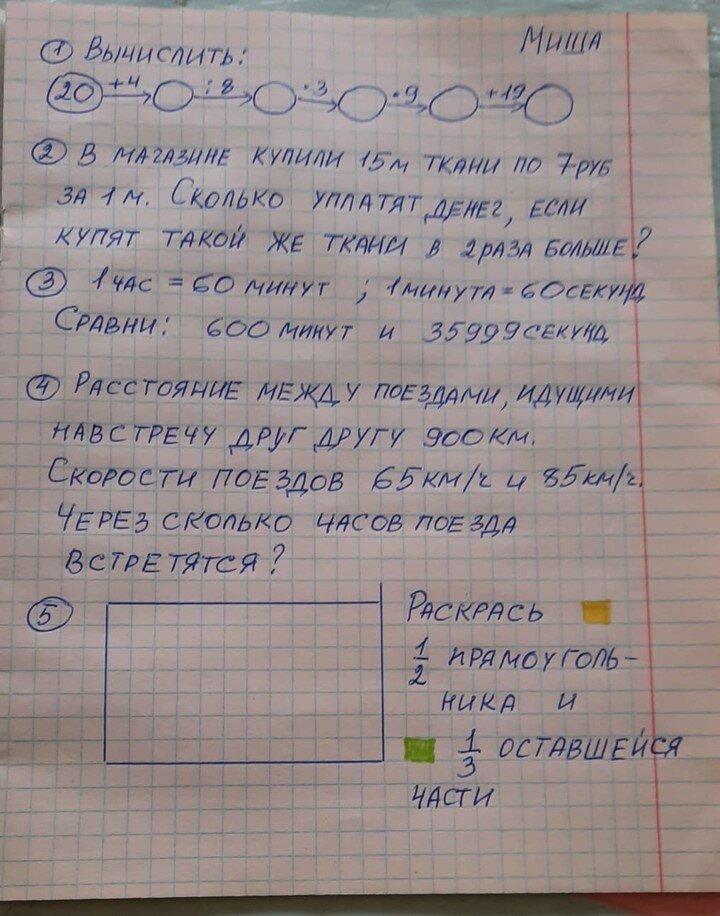 Миша
① Вычислить:
20 +4 :8 ·3 ·9 +19
② В магазине купили 15м ткани по 7руб
за 1м. Сколько уплатят денег, если
купят такой же ткани в 2раза больше?
③ 1час = 60 минут ; 1минута = 60секунд
Сравни: 600 минут и 35999секунд
④ Расстояние между поездами, идущими
навстречу друг другу 900км.
Скорости поездов 65км/ч и 85км/ч.
Через сколько часов поезда
встретятся?
⑤ Раскрась
1/2 прямоуголь-
ника и
1/3 оставшейся
части